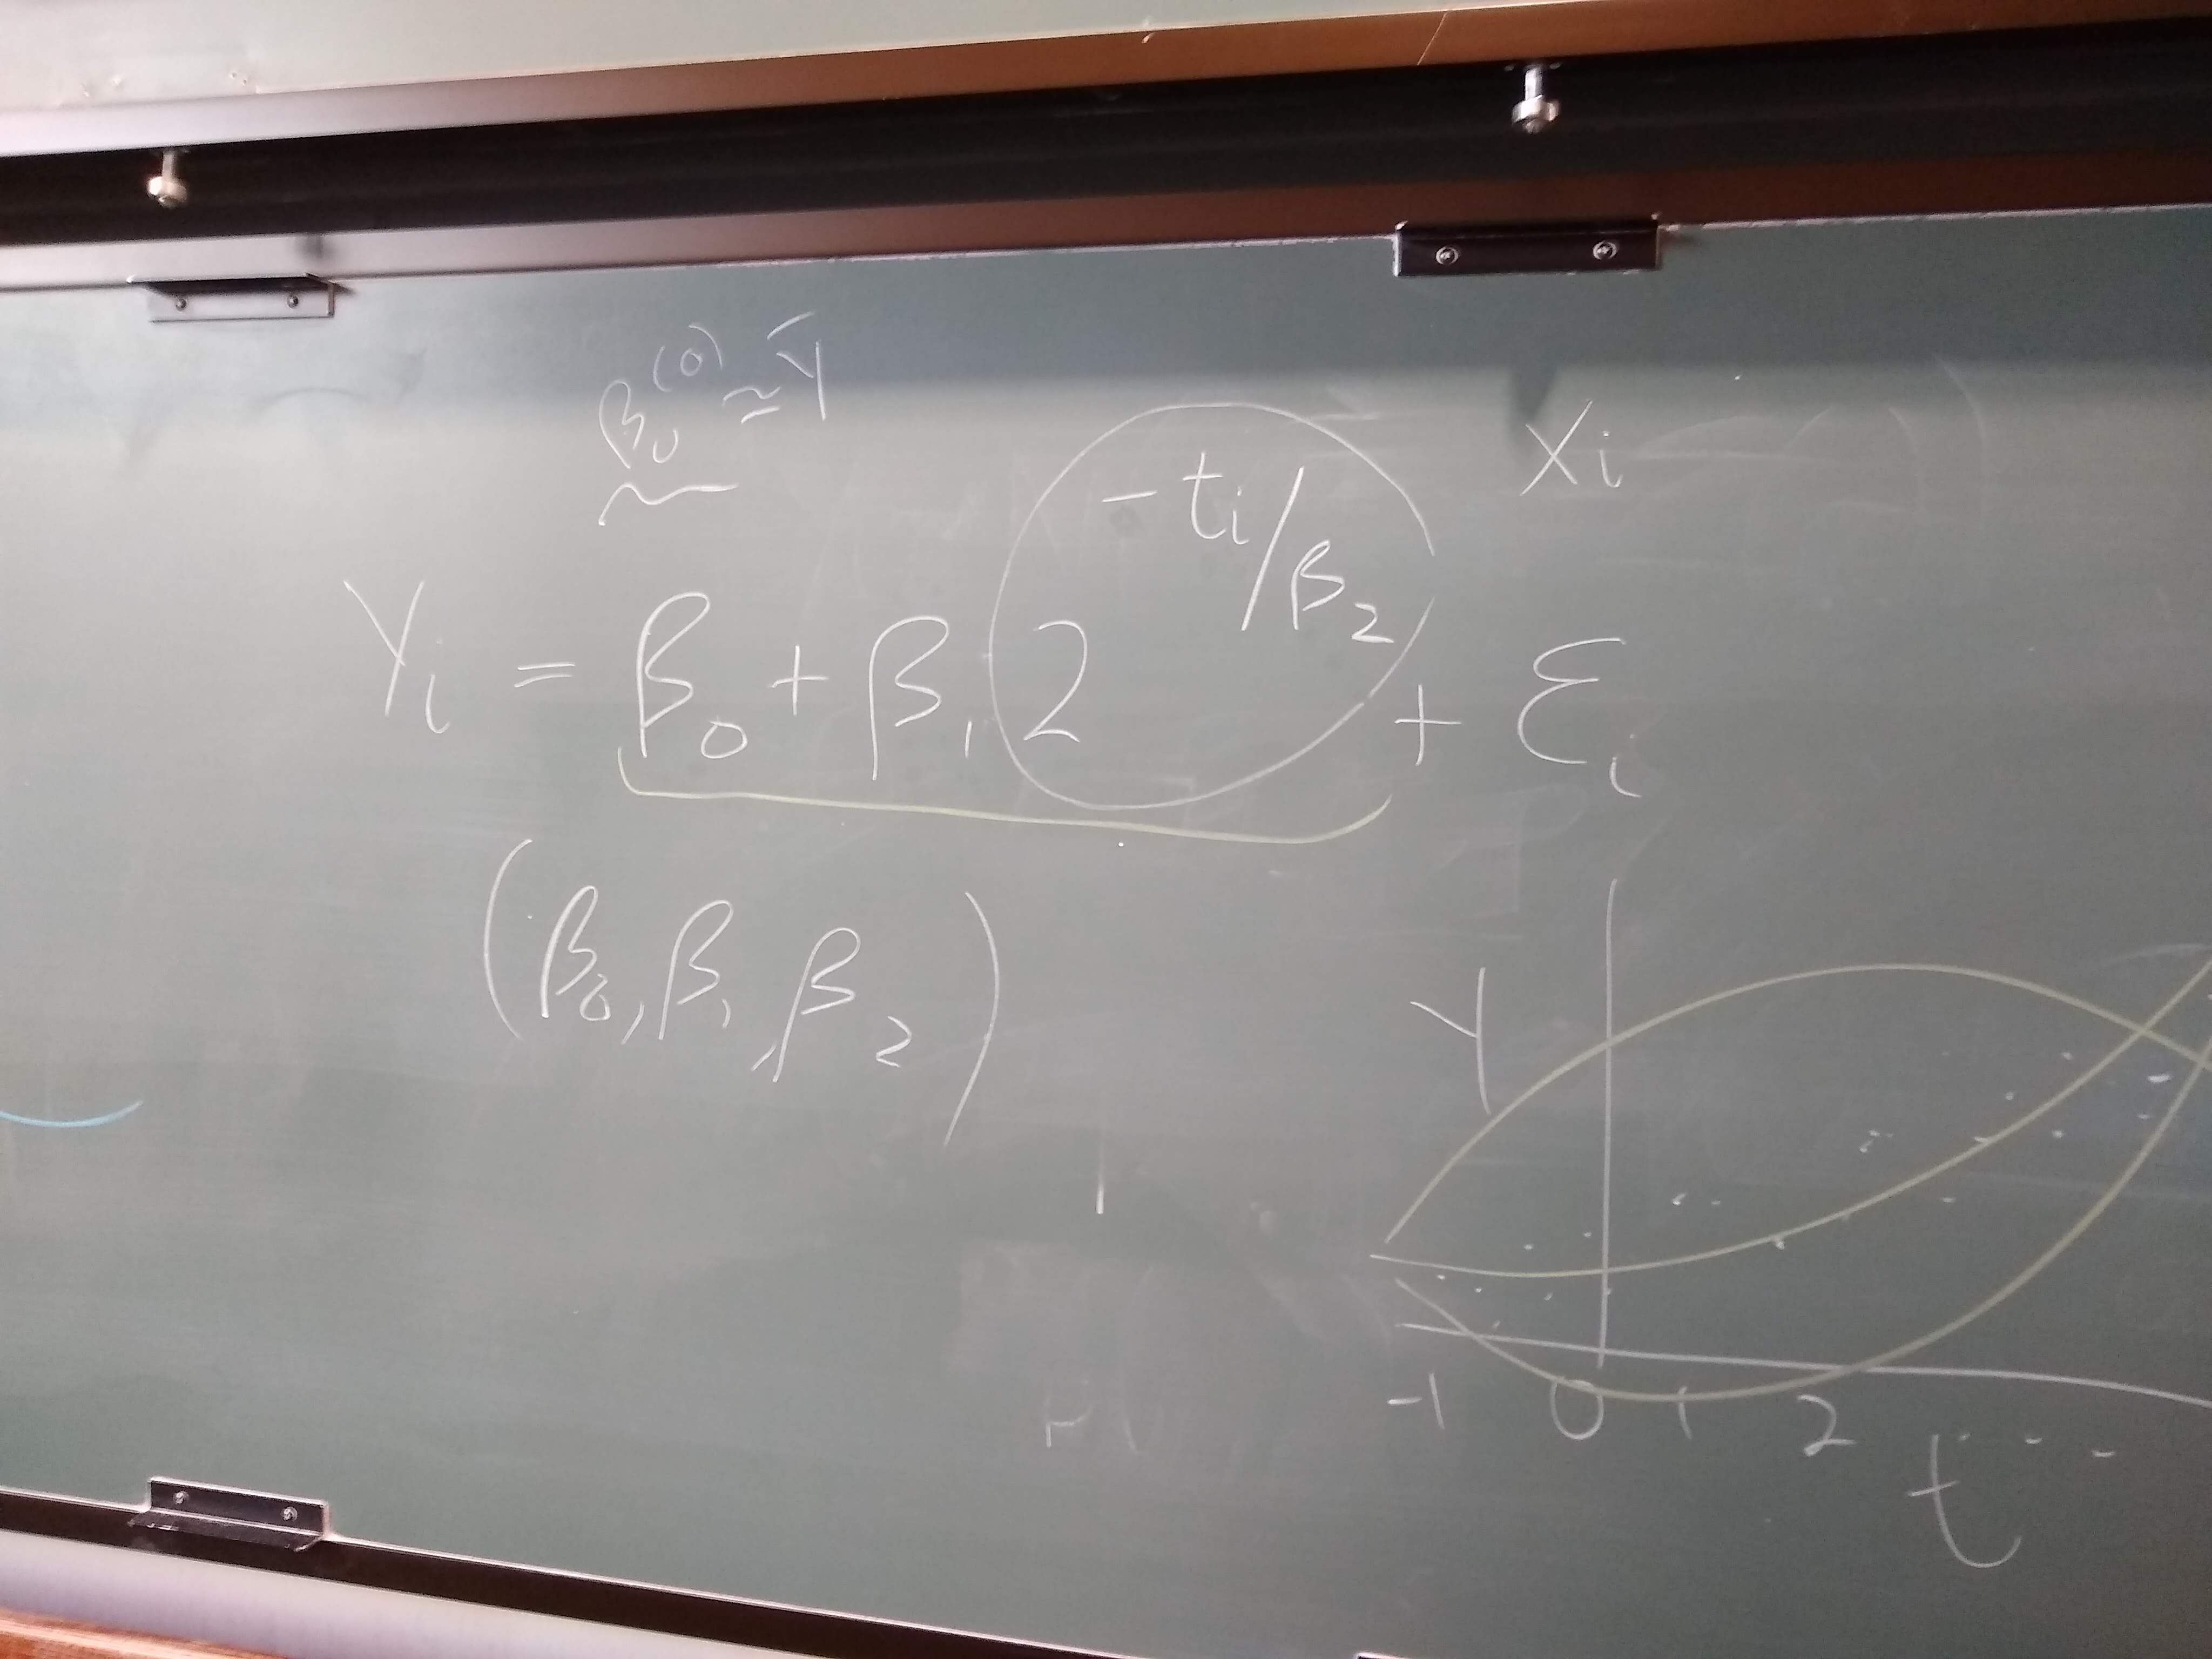 β₀⁽⁰⁾ ≃ Ȳ
Xi
Yi = β₀ + β₁ 2^(-ti/β₂) + εi
(β₀, β₁, β₂)
Y
-1 0 1 2 ...
t